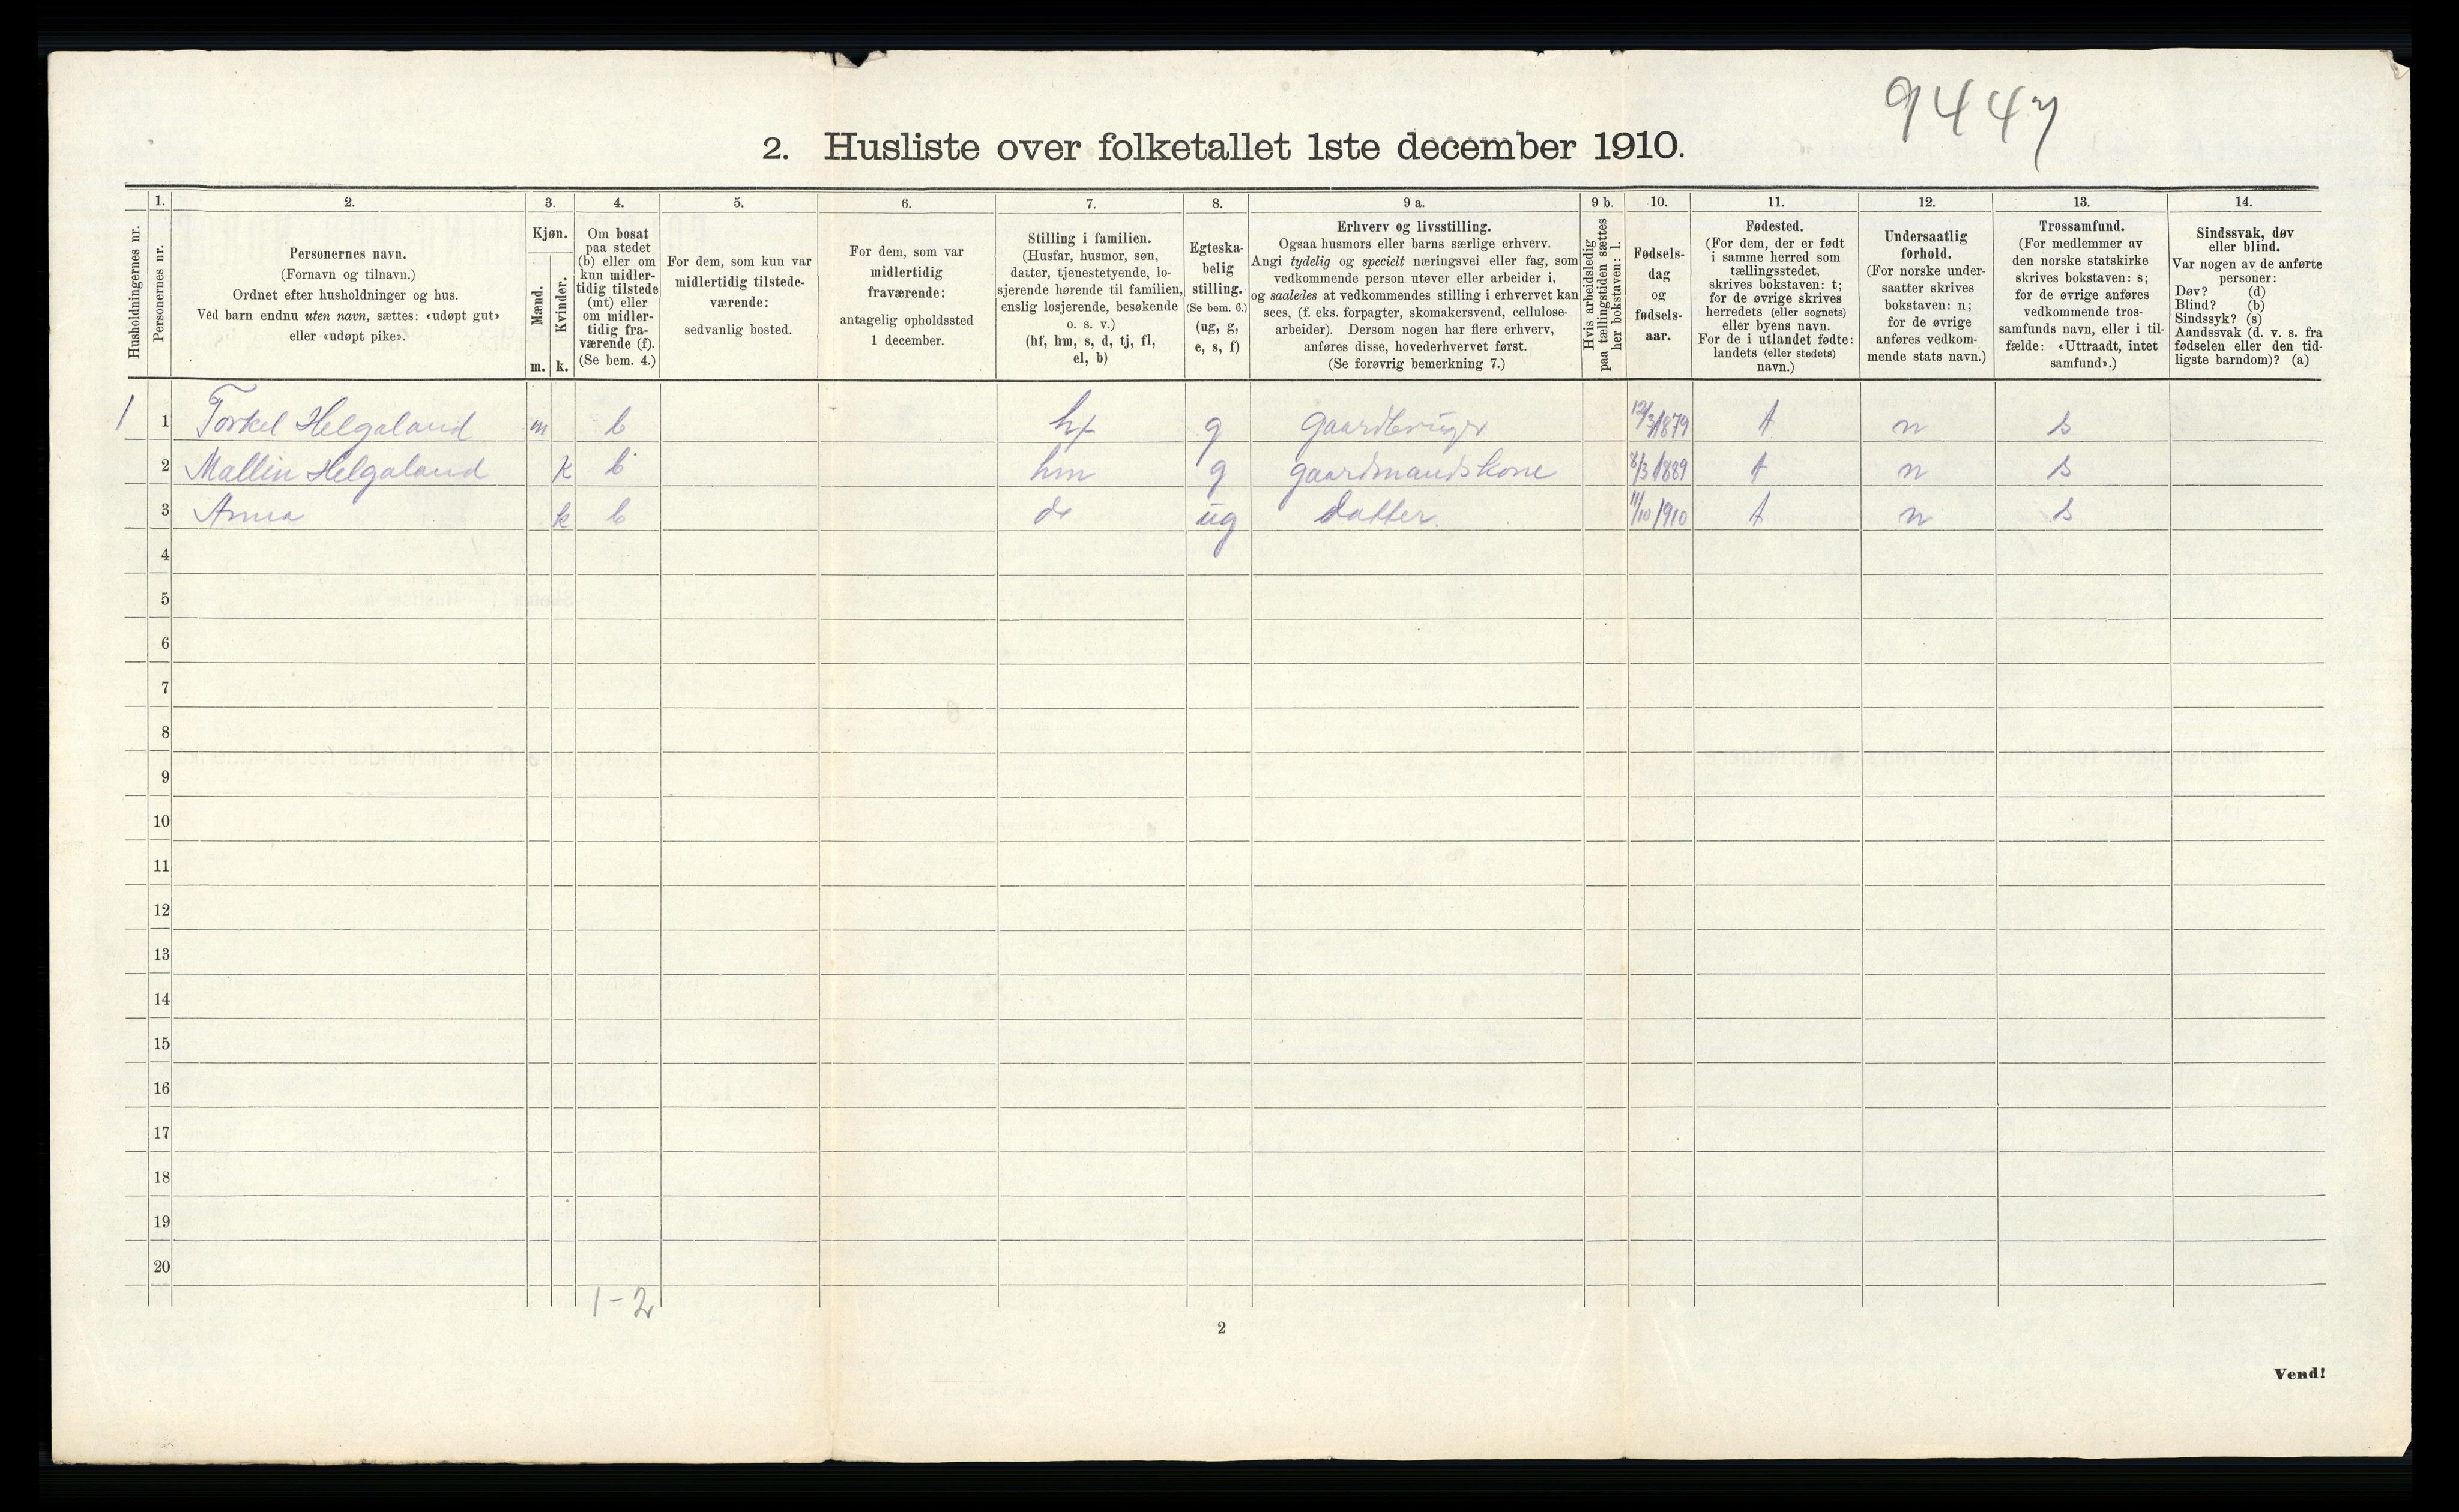 9447
2. Husliste over folketallet 1ste december 1910.
Husholdningernes nr.
1.
Personernes nr.
2.
Personernes navn.
(Fornavn og tilnavn.)
Ordnet efter husholdninger og hus.
Ved barn endnu uten navn, sættes: «udøpt gut»
eller «udøpt pike».
3.
Kjøn.
Mænd.
Kvinder.
m. k.
4.
Om bosat
paa stedet
(b) eller om
kun midler-
tidig tilstede
(mt) eller
om midler-
tidig fra-
værende (f).
(Se bem. 4.)
5.
For dem, som kun var
midlertidig tilstede-
værende:
sedvanlig bosted.
6.
For dem, som var
midlertidig
fraværende:
antagelig opholdssted
1 december.
7.
Stilling i familien.
(Husfar, husmor, søn,
datter, tjenestetyende, lo-
sjerende hørende til familien,
enslig losjerende, besøkende
o. s. v.)
(hf, hm, s, d, tj, fl,
el, b)
8.
Egteska-
belig
stilling.
(Se bem. 6.)
(ug, g,
e, s, f)
9 a.
Erhverv og livsstilling.
Ogsaa husmors eller barns særlige erhverv.
Angi tydelig og specielt næringsvei eller fag, som
vedkommende person utøver eller arbeider i,
og saaledes at vedkommendes stilling i erhvervet kan
sees, (f. eks. forpagter, skomakersvend, cellulose-
arbeider). Dersom nogen har flere erhverv,
anføres disse, hovederhvervet først.
(Se forøvrig bemerkning 7.)
9 b.
Hvis arbeidsledig
paa tællingstiden sættes
her bokstaven: l.
10.
Fødsels-
dag
og
fødsels-
aar.
11.
Fødested.
(For dem, der er født
i samme herred som
tællingsstedet,
skrives bokstaven: t;
for de øvrige skrives
herredets (eller sognets)
eller byens navn.
For de i utlandet fødte:
landets (eller stedets)
navn.)
12.
Undersaatlig
forhold.
(For norske under-
saatter skrives
bokstaven: n;
for de øvrige
anføres vedkom-
mende stats navn.)
13.
Trossamfund.
(For medlemmer av
den norske statskirke
skrives bokstaven: s;
for de øvrige anføres
vedkommende tros-
samfunds navn, eller i til-
fælde: «Uttraadt, intet
samfund».)
14.
Sindssvak, døv
eller blind.
Var nogen av de anførte
personer:
Døv? (d)
Blind? (b)
Sindssyk? (s)
Aandssvak (d. v. s. fra
fødselen eller den tid-
ligste barndom)? (a)
1 1 Torkel Helgaland m b hf g gaardbruger 12/3 1879 t n s
2 Mallin Helgaland k b hm g gaardmandskone 8/3 1889 t n s
3 Anna k b d ug datter. 11/10 1910 t n s
4
5
6
7
8
9
10
11
12
13
14
15
16
17
18
19
20
1-2
2
Vend!